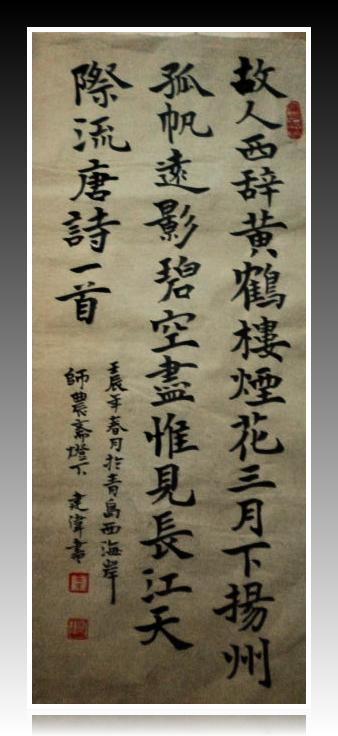 故人西辞黄鶴樓煙花三月下揚州
孤帆遠影碧空盡惟見長江天
際流唐詩一首
壬辰年春月於青島西海岸
師農斋燈下建偉書